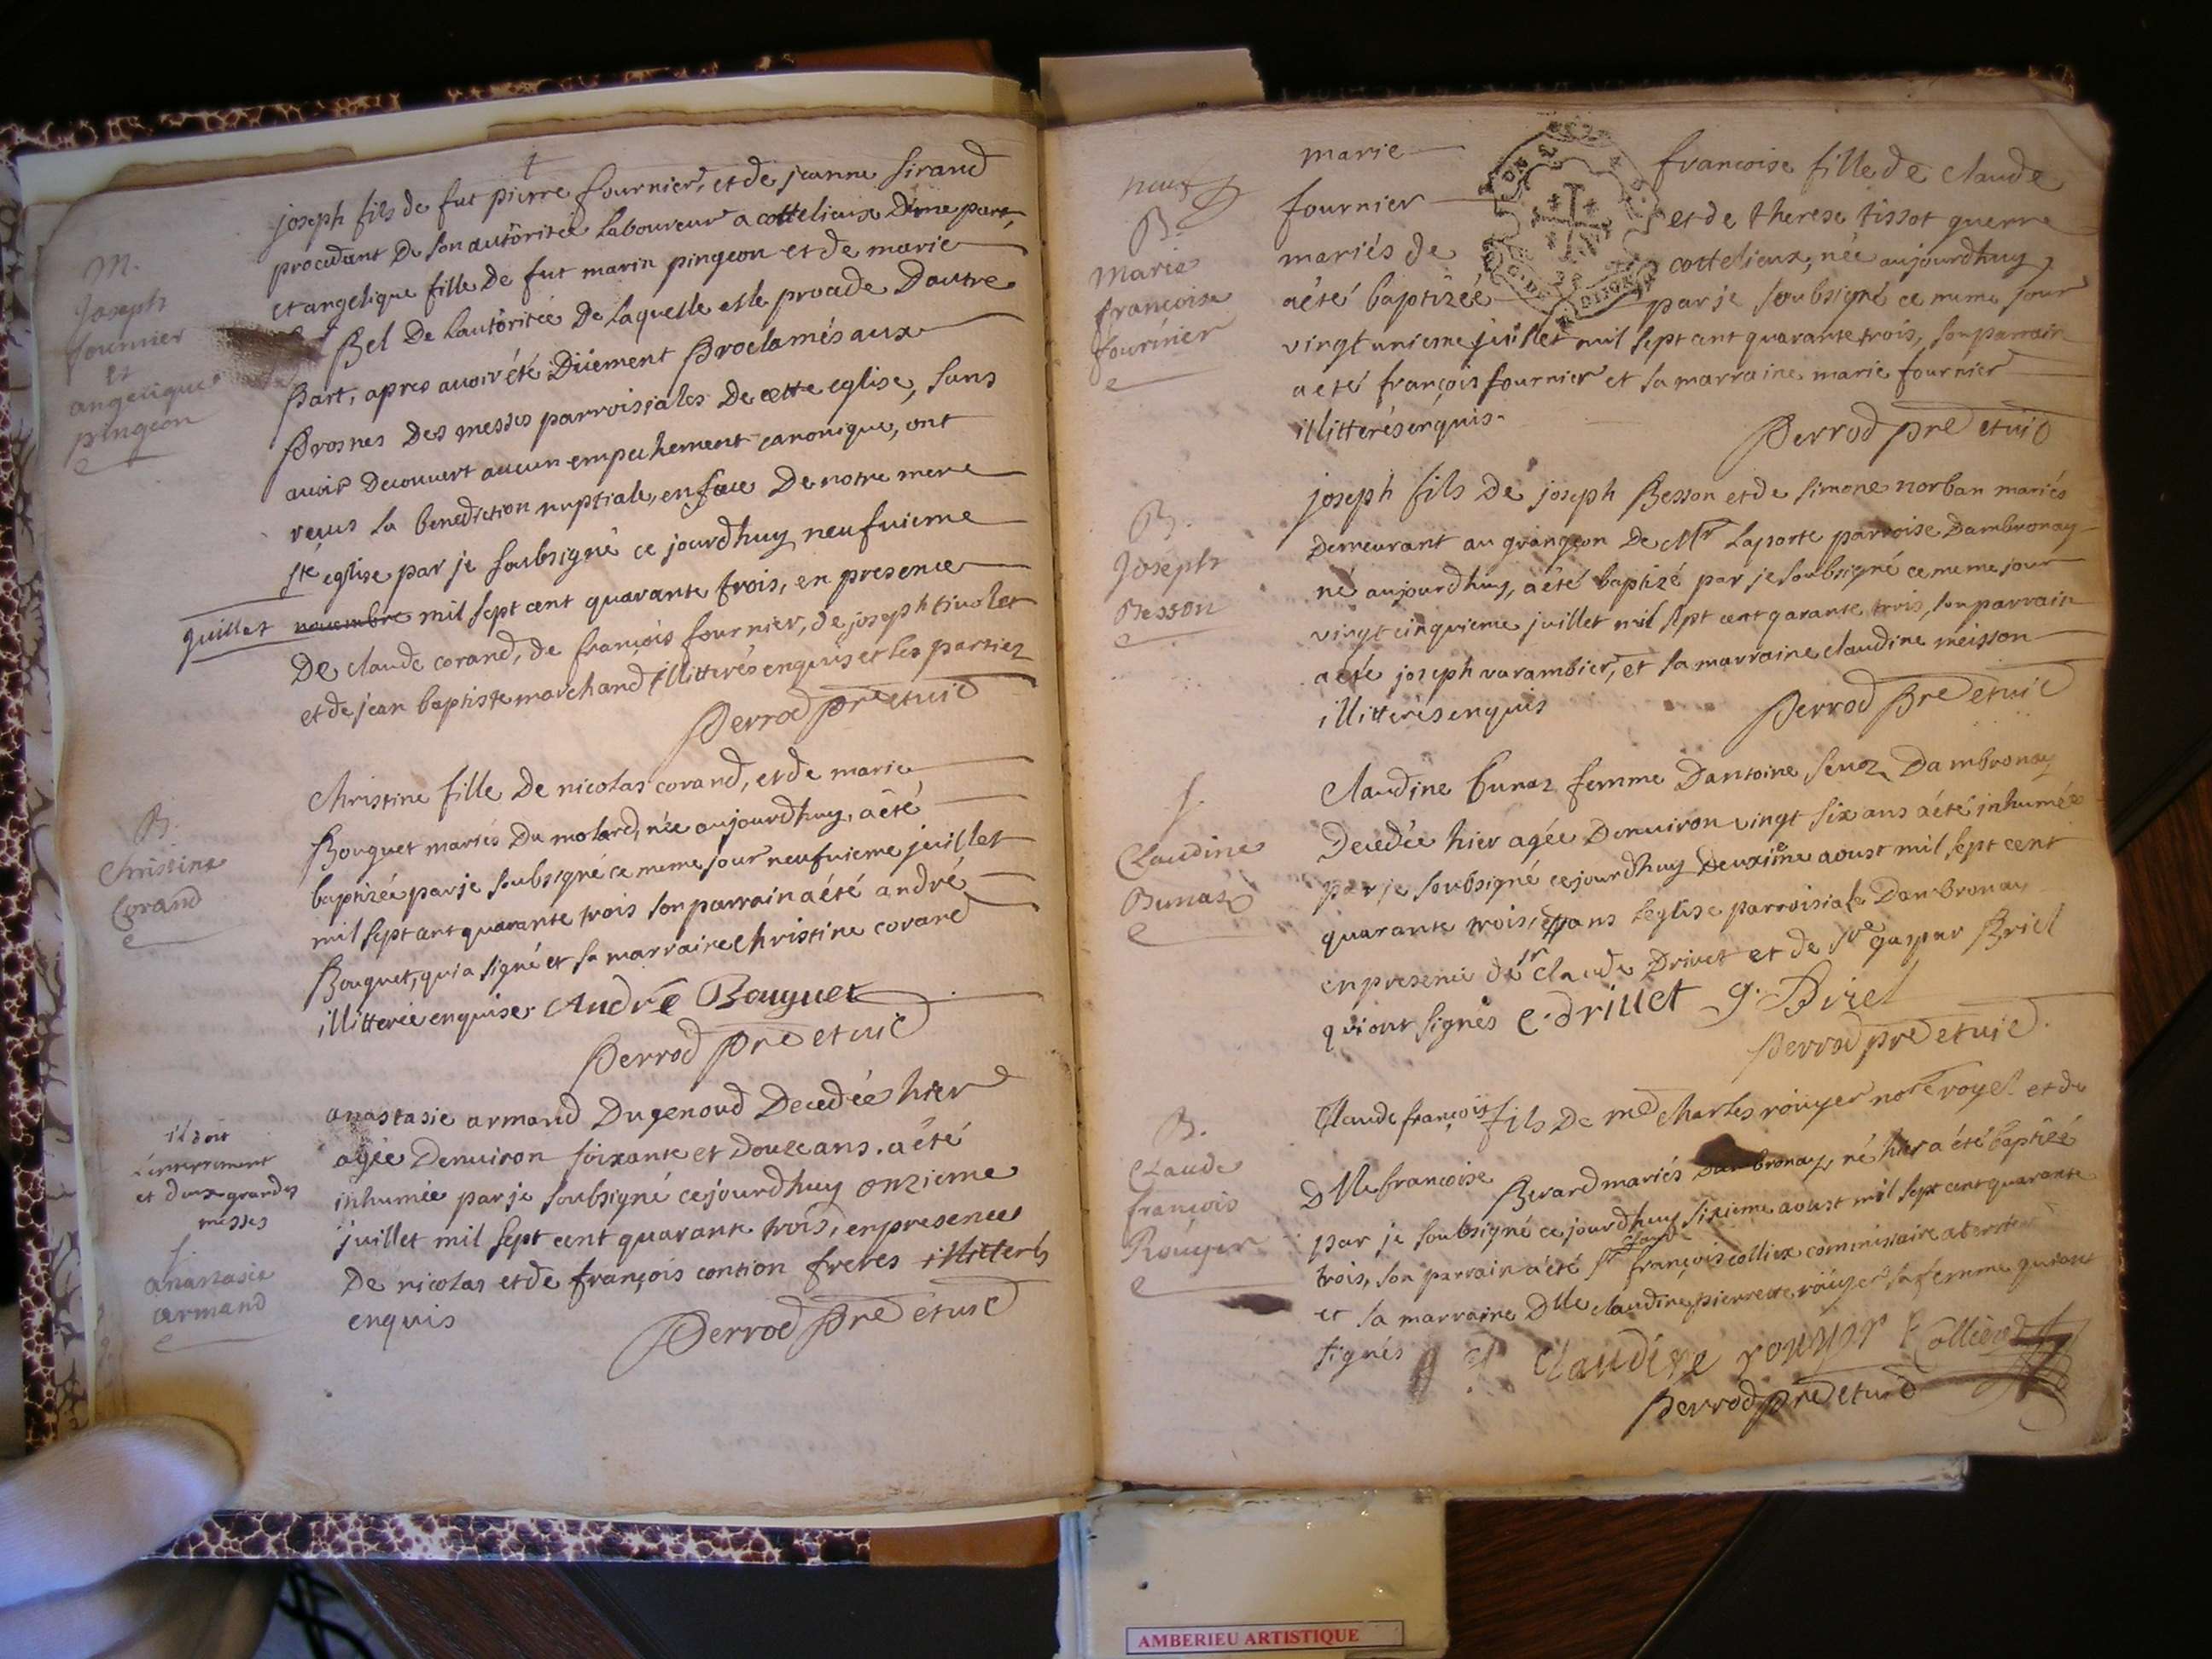 joseph fils de fut pierre fournier, et de jeanne sirand
procedant de son autoritée laboureur a cottelieux d'une part,
et angelique fille de fut marin pingeon et de marie
Bel de lautoritée de laquelle elle procede dautre
part, apres avoir été düement proclamés aux
prosnes des messes parroissiales de cette eglise, sans
avoir decouvert aucun empechement canonique, ont
reçus la benediction nuptiale, en face de notre mere
ste eglise par je soubsigné ce jourdhuy neufvieme
juillet novembre mil sept cent quarante trois, en presence
de claude corand, de françois fournier, de joseph tivolet
et de jean baptiste marchand illitterés enquis et les parties
Perrod pre et vic
M.
joseph
fournier
et
angelique
pingeon
christine fille de nicolas corand, et de marie
Bouquet mariés du molard, née aujourdhuy, a été
baptizée par je soubsigné ce meme jour neufvieme juillet
mil sept cent quarante trois son parrain a été andré
Bouquet, qui a signé et sa marraine christine corand
illitterée enquise. André Bouquet
Perrod pre et vic
B.
christine
Corand
anastasie armand du genoud decedée hier
agée denviron soixante et douze ans. a été
inhumée par je soubsigné cejourdhuy onzieme
juillet mil sept cent quarante trois, en presence
de nicolas et de françois contion freres illitterés
enquis
Perrod pre et vic
il doit
l'enterrement
et deux grandes
messes
S.
anastasie
armand
neuf
marie francoise fille de claude
fournier et de therese tissot guerre
mariés de cottelieux, née aujourdhuy,
a été baptizée par je soubsigné ce meme jour
vingt unieme juillet mil sept cent quarante trois, son parrain
a eté françois fournier et sa marraine marie fournier
illitterés enquis.
Perrod pre et vic
B.
Marie
françoise
fournier
joseph fils de joseph Besson et de simone norban mariés
demeurant au grangeon de Mr Laporte parroise dambronay
né aujourdhuy, a été baptizé par je soubsigné ce meme jour
vingt cinquieme juillet mil sept cent qarante trois, son parrain
a été joseph varambier, et sa marraine claudine meisson
illitterés enquis
Perrod pre et vic
B.
Joseph
Besson
Claudine bunaz femme dantoine dambronay
decedée hier agée denviron vingt six ans a été inhumée
par je soubsigné cejourdhuy deuxieme aoust mil sept cent
quarante trois, dans leglise parroisiale dambronay
en presence de sr claude Drivet et de sre gaspar Briel
qui ont signés c. drivet g. Briel
Perrod pre et vic
S.
Claudine
Bunaz
Claude françois fils de me charles roüyer nore royal et de
Dlle francoise Berard mariés dambronay, né hier a été baptizé
par je soubsigné ce jourdhuy sixieme aoust mil sept cent quarante
trois, son parrain a été sr claude françois colliex commissaire a terrier
et sa marraine Dlle claudine pierrette roüyer sa femme qui ont
signés Claudine rouyer Colliex
Perrod pre et vic
B.
Claude
françois
Roüyer
AMBERIEU ARTISTIQUE